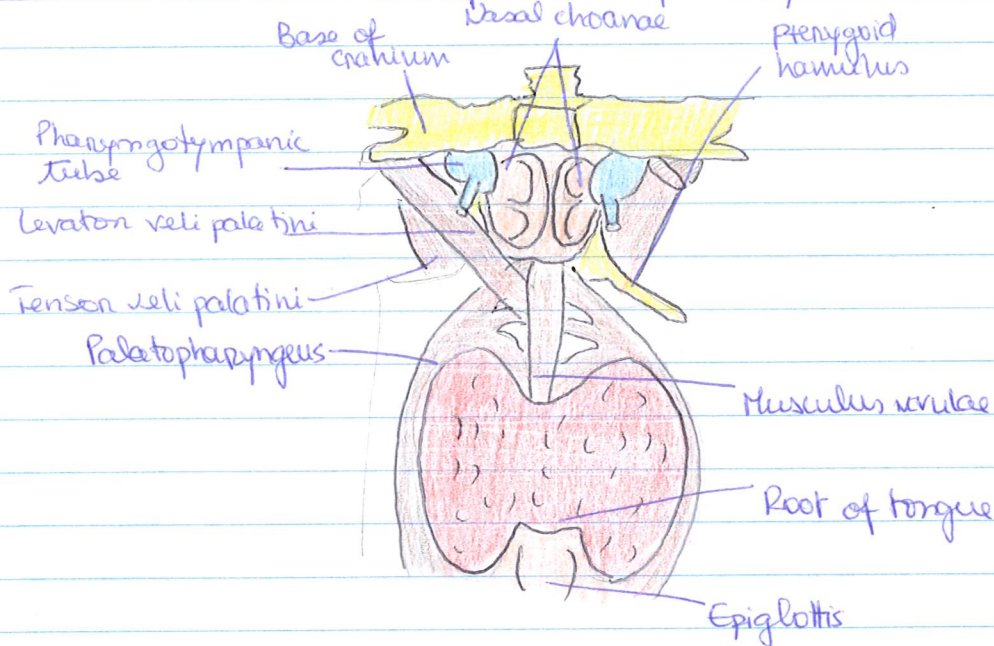 Nasal choanae
Base of
cranium
pterygoid
hamulus
Pharyngotympanic
tube
Levator veli palatini
Tensor veli palatini
Palatopharyngeus
Musculus uvulae
Root of tongue
Epiglottis